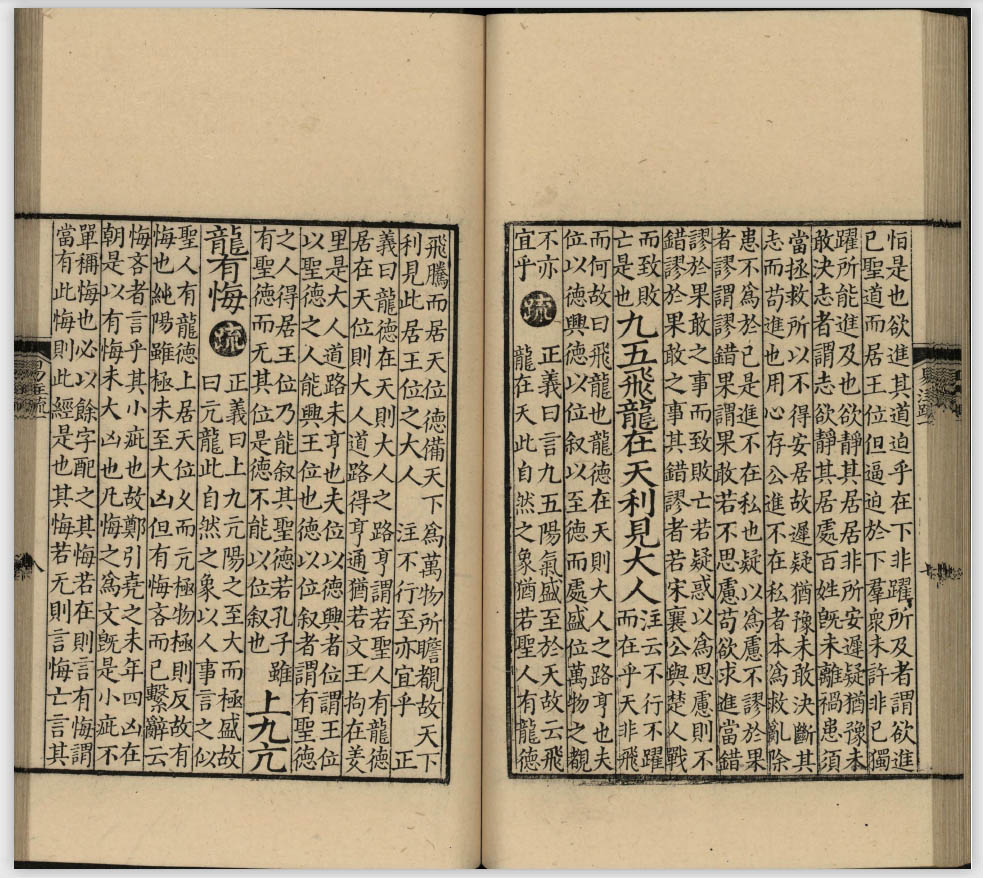 恒是也欲進其道迫乎在下非躍所及者謂欲進
已聖道而居王位但逼迫於下羣衆未許非已獨
躍所能進及也欲靜其居居非所安遲疑猶豫未
敢決志者謂志欲靜其居處百姓旣未離禍患須
當拯救所以不得安居故遲疑猶豫未敢決斷其
志而苟進也用心存公進不在私者本爲救亂除
患不爲於己是進不在私也疑以爲慮不謬於果
者謬謂錯果謂果敢若不思慮苟欲求進當錯
謬於果敢之事而致敗亡若疑惑以爲思慮則不
錯謬於果敢之事其錯謬者若宋襄公與楚人戰
而致敗
亡是也
九五飛龍在天利見大人
注云不行不躍
而在乎天非飛
而何故曰飛龍也龍德在天則大人之路亨也夫
位以德興德以位叙以至德而處盛位萬物之覩
不亦
宜乎
疏
正義曰言九五陽氣盛至於天故云飛
龍在天此自然之象猶若聖人有龍德
飛騰而居天位德備天下爲萬物所瞻覩故天下
利見此居王位之大人 注不行至亦宜乎 正
義曰龍德在天則大人之路亨謂若聖人有龍德
居在天位則大人道路得亨通猶若文王拘在羑
里是大人道路未亨也夫位以德興者位謂王位
以聖德之人能興王位也德以位叙者謂有聖德
之人得居王位乃能叙其聖德若孔子雖
有聖德而无其位是德不能以位叙也
上九亢
龍有悔
疏
正義曰上九亢陽之至大而極盛故
曰亢龍此自然之象以人事言之似
聖人有龍德上居天位久而亢極物極則反故有
悔也純陽雖極未至大凶但有悔吝而已繫辭云
悔吝者言乎其小疵也故鄭引堯之末年四凶在
朝是以有悔未大凶也凡悔之爲文旣是小疵不
單稱悔也必以餘字配之其悔若在則言有悔謂
當有此悔則此經是也其悔若无則言悔亡言其